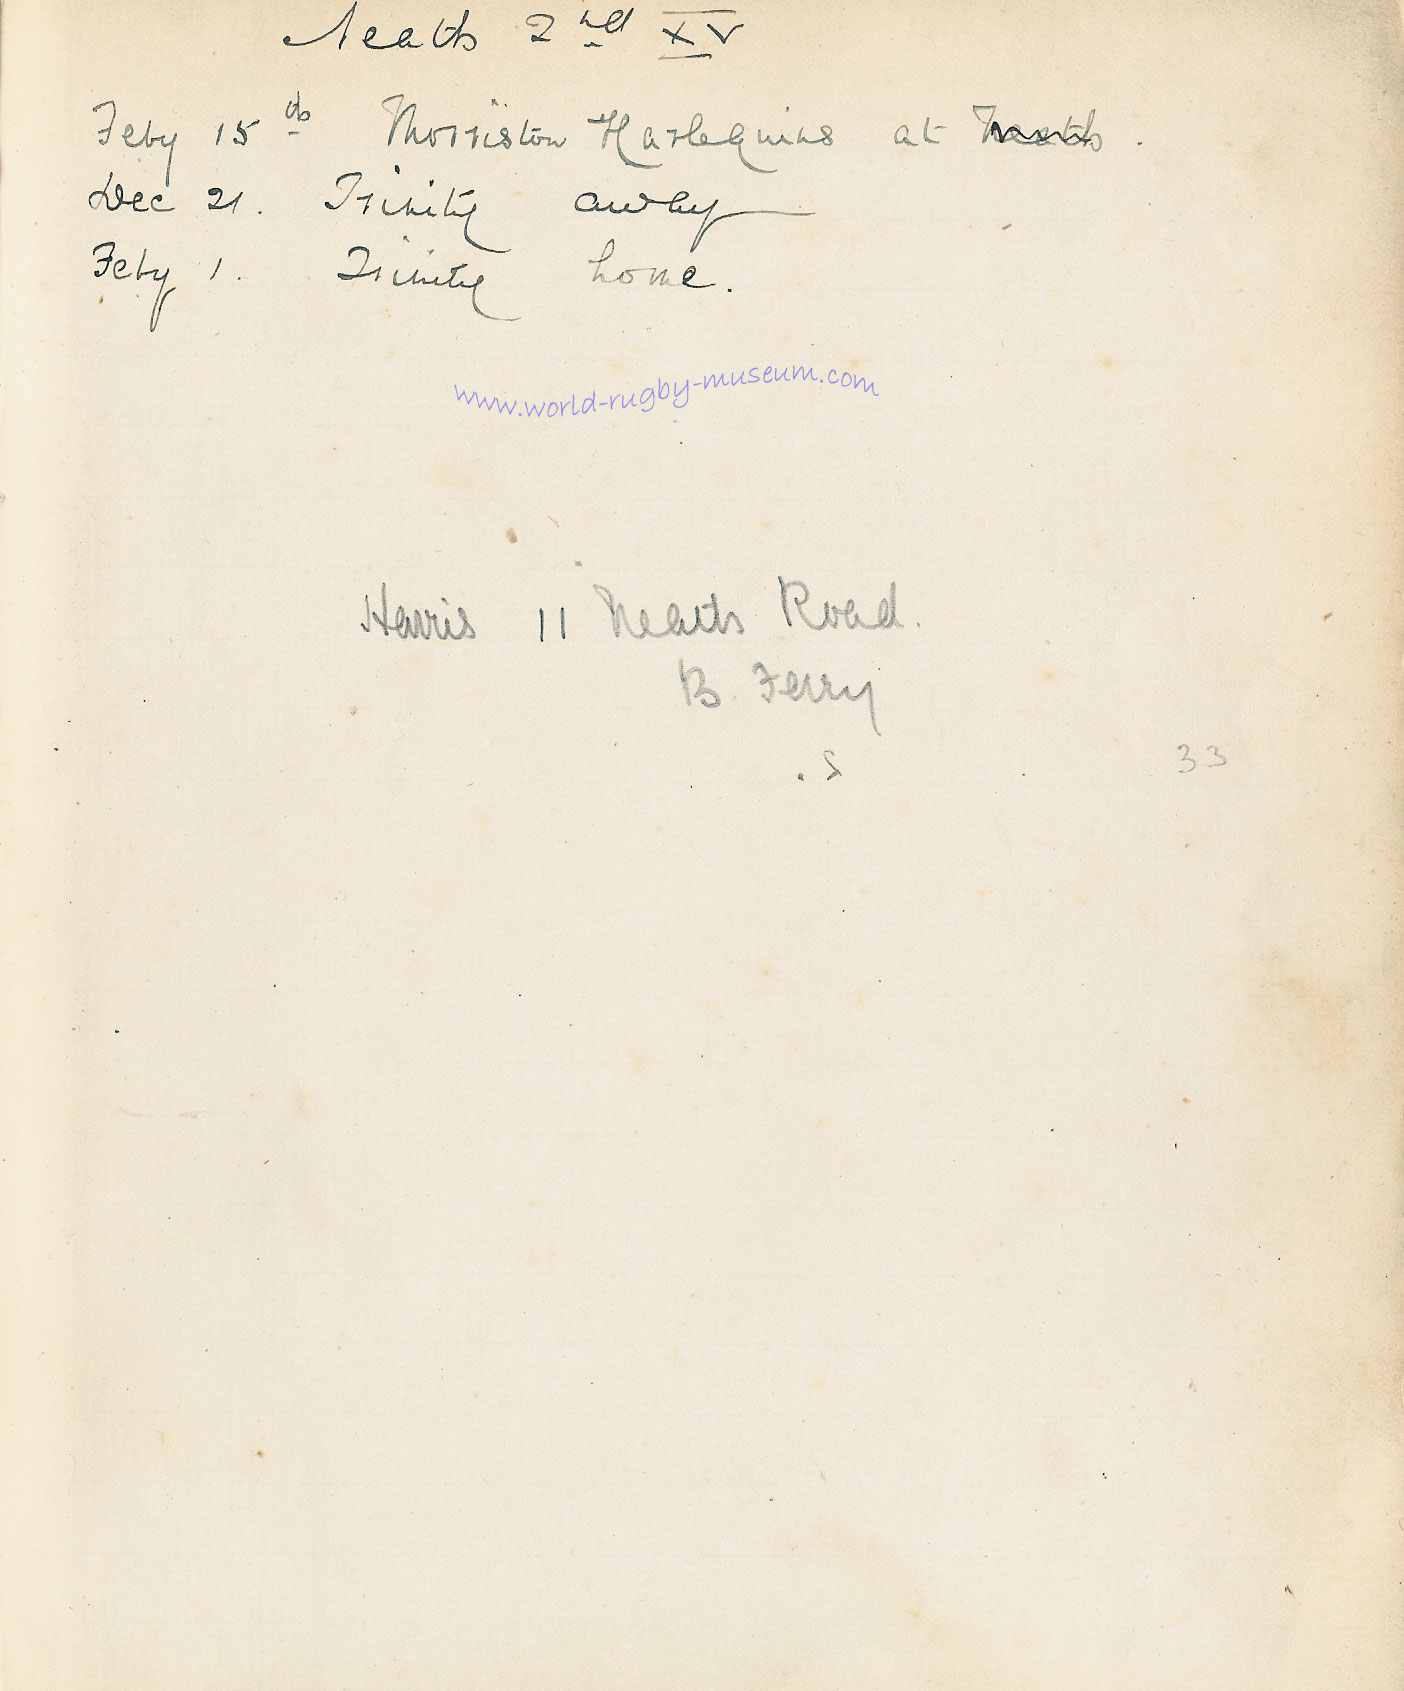 Neath 2nd XV
Feby 15th Morriston Harlequins at Neath.
Dec 21. Trinity away
Feby 1. Trinity home.
www.world-rugby-museum.com
Harris 11 Neath Road.
B. Ferry
33